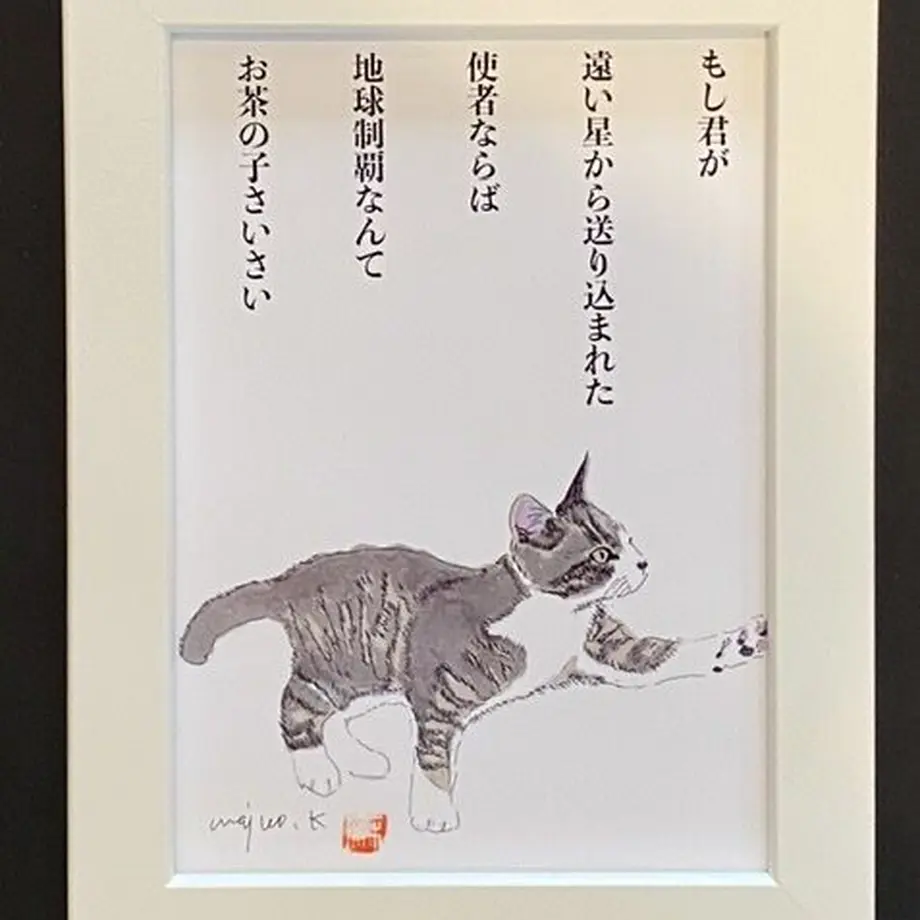 もし君が
遠い星から送り込まれた
使者ならば
地球制覇なんて
お茶の子さいさい